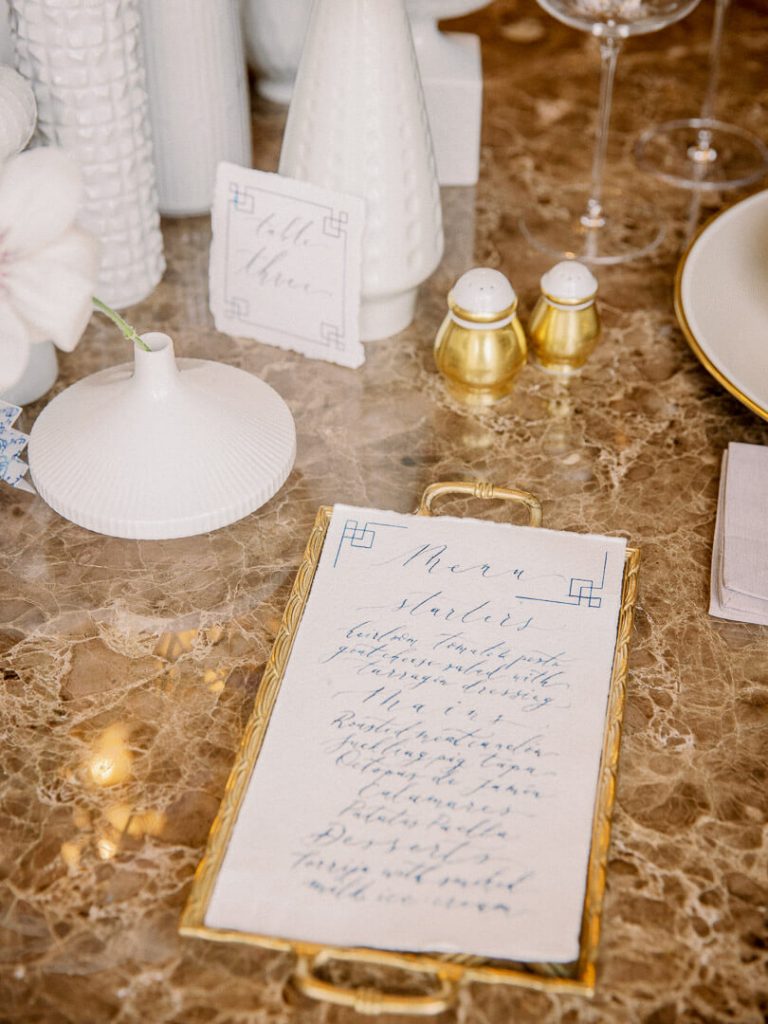 table
three
Menu
starters
heirloom Tomato pesto
goat cheese salad with
tarragin dressing
Mains
Roasted meat
Suckling pig tapa
Octopus de Jamón
Calamares
Patatas Paella
Desserts
Torrija with smoked
milk ice-cream